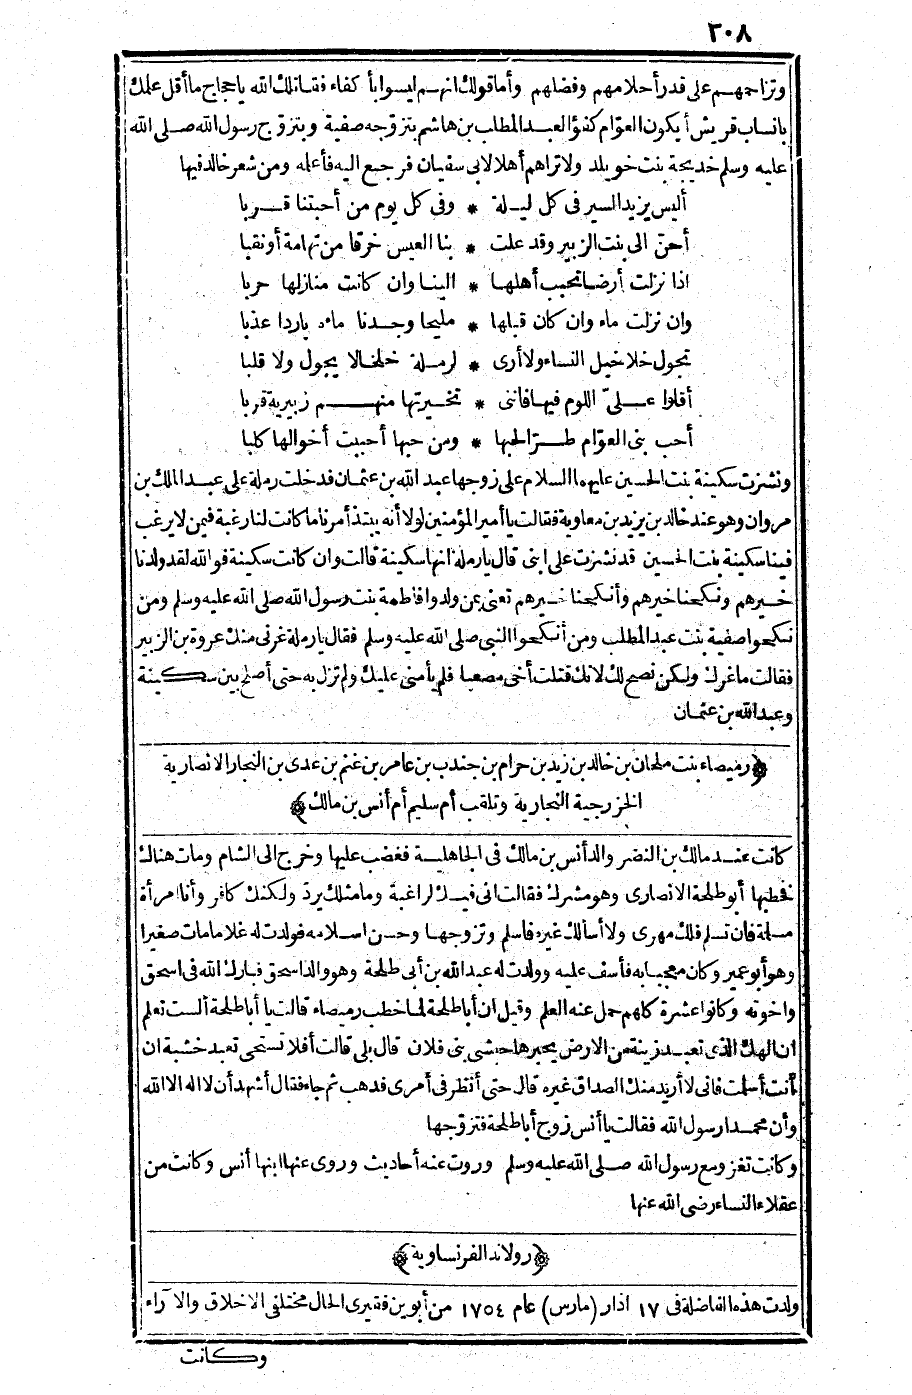 ٢٠٨
وتزاجهم على قدر أحلامهم وفضلهم وأما قولك انهم ليسوا بأ كفاء فقاتلك الله ياحجاج ما أقل علمك
بانساب قريش أيكون العوّام كفؤ العبد المطلب بن هاشم بتزوّجه صفية وبتزوّج رسول الله صلى الله
عليه وسلم خديجة بنت خويلد ولا تراهم أهلا لابى سفيان فرجع اليه فأعلمه ومن شعر خالد فيها
أليس يزيد السير فى كل ليلة * وفى كل يوم من أحبتنا قربا
أحنّ الى بنت الزبير وقد علت * بنا العيس خرقا من تهامة أو نقبا
اذا نزلت أرضا تحبب أهلها * الينا وان كانت منازلها حربا
وان نزلت ماء وان كان قبلها * مليحا وجدنا ماءه باردا عذبا
تجول خلاخيل النساء ولا أرى * لرملة خلخالا يجول ولا قلبا
أقلوا علىّ اللوم فيها فاننى * تخيرتها منهم زبيرية قربا
أحب بنى العوّام طرّا لحبها * ومن حبها أحببت أخوالها كلبا
ونشزت سكينة بنت الحسين عليهما السلام على زوجها عبد الله بن عثمان فدخلت رملة على عبد الملك بن
مروان وهو عند خالد بن يزيد بن معاوية فقالت يا أمير المؤمنين لولا أنه يبتذ أمرنا ما كانت لنا رغبة فيمن لا يرغب
فينا سكينة بنت الحسين قد نشزت على ابنى قال يارملة انها سكينة قالت وان كانت سكينة فو الله لقد ولدنا
خيرهم ونكحنا خيرهم وأنكحنا خيرهم تعنى بمن ولدوا فاطمة بنت رسول الله صلى الله عليه وسلم ومن
نكحوا صفية بنت عبد المطلب ومن أنكحوا النبى صلى الله عليه وسلم فقال يارملة غرنى منك عروة بن الزبير
فقالت ما غرك ولكن نصح لك لانك قتلت أخى مصعبا فلم يأمنى عليك ولم تزل به حتى أصلح بين سكينة
وعبد الله بن عثمان
﴿رميصاء بنت ملحان بن خالد بن زيد بن حرام بن جندب بن عامر بن غنم بن عدى بن النجار الانصارية
الخزرجية النجارية وتلقب أم سليم أم أنس بن مالك﴾
كانت عند مالك بن النضر والد أنس بن مالك فى الجاهلية فغضب عليها وخرج الى الشام ومات هناك
فخطبها أبو طلحة الانصارى وهو مشرك فقالت انى فيك لراغبة وما مثلك يردّ ولكنك كافر وأنا امرأة
مسلمة فان تسلم فلك مهرى ولا أسألك غيره فاسلم وتزوجها وحسن اسلامه فولدت له غلاما مات صغيرا
وهو أبو عمير وكان معجبا به فأسف عليه وولدت له عبد الله بن أبى طلحة وهو والد اسحق فبارك الله فى اسحق
واخوته وكانوا عشرة كلهم حمل عنه العلم وقيل ان أبا طلحة لما خطب رميصاء قالت يا أبا طلحة ألست تعلم
ان الهك الذى تعبد زينة من الارض يجبرها حبشى بنى فلان قال بلى قالت أفلا تستحى تعبد خشبة ان
أنت أسلمت فانى لا أريد منك الصداق غيره قال حتى أنظر فى أمرى فذهب ثم جاء فقال أشهد أن لا اله الا الله
وأن محمدا رسول الله فقالت يا أنس زوج أبا طلحة فتزوّجها
وكانت تغزو مع رسول الله صلى الله عليه وسلم وروت عنه أحاديث وروى عنها ابنها أنس وكانت من
عقلاء النساء رضى الله عنها
﴿رولاند الفرنساوية﴾
ولدت هذه الفاضلة فى ١٧ اذار (مارس) عام ١٧٥٤ من أبوين فقيرى الحال مختلفى الاخلاق والآراء
وكانت